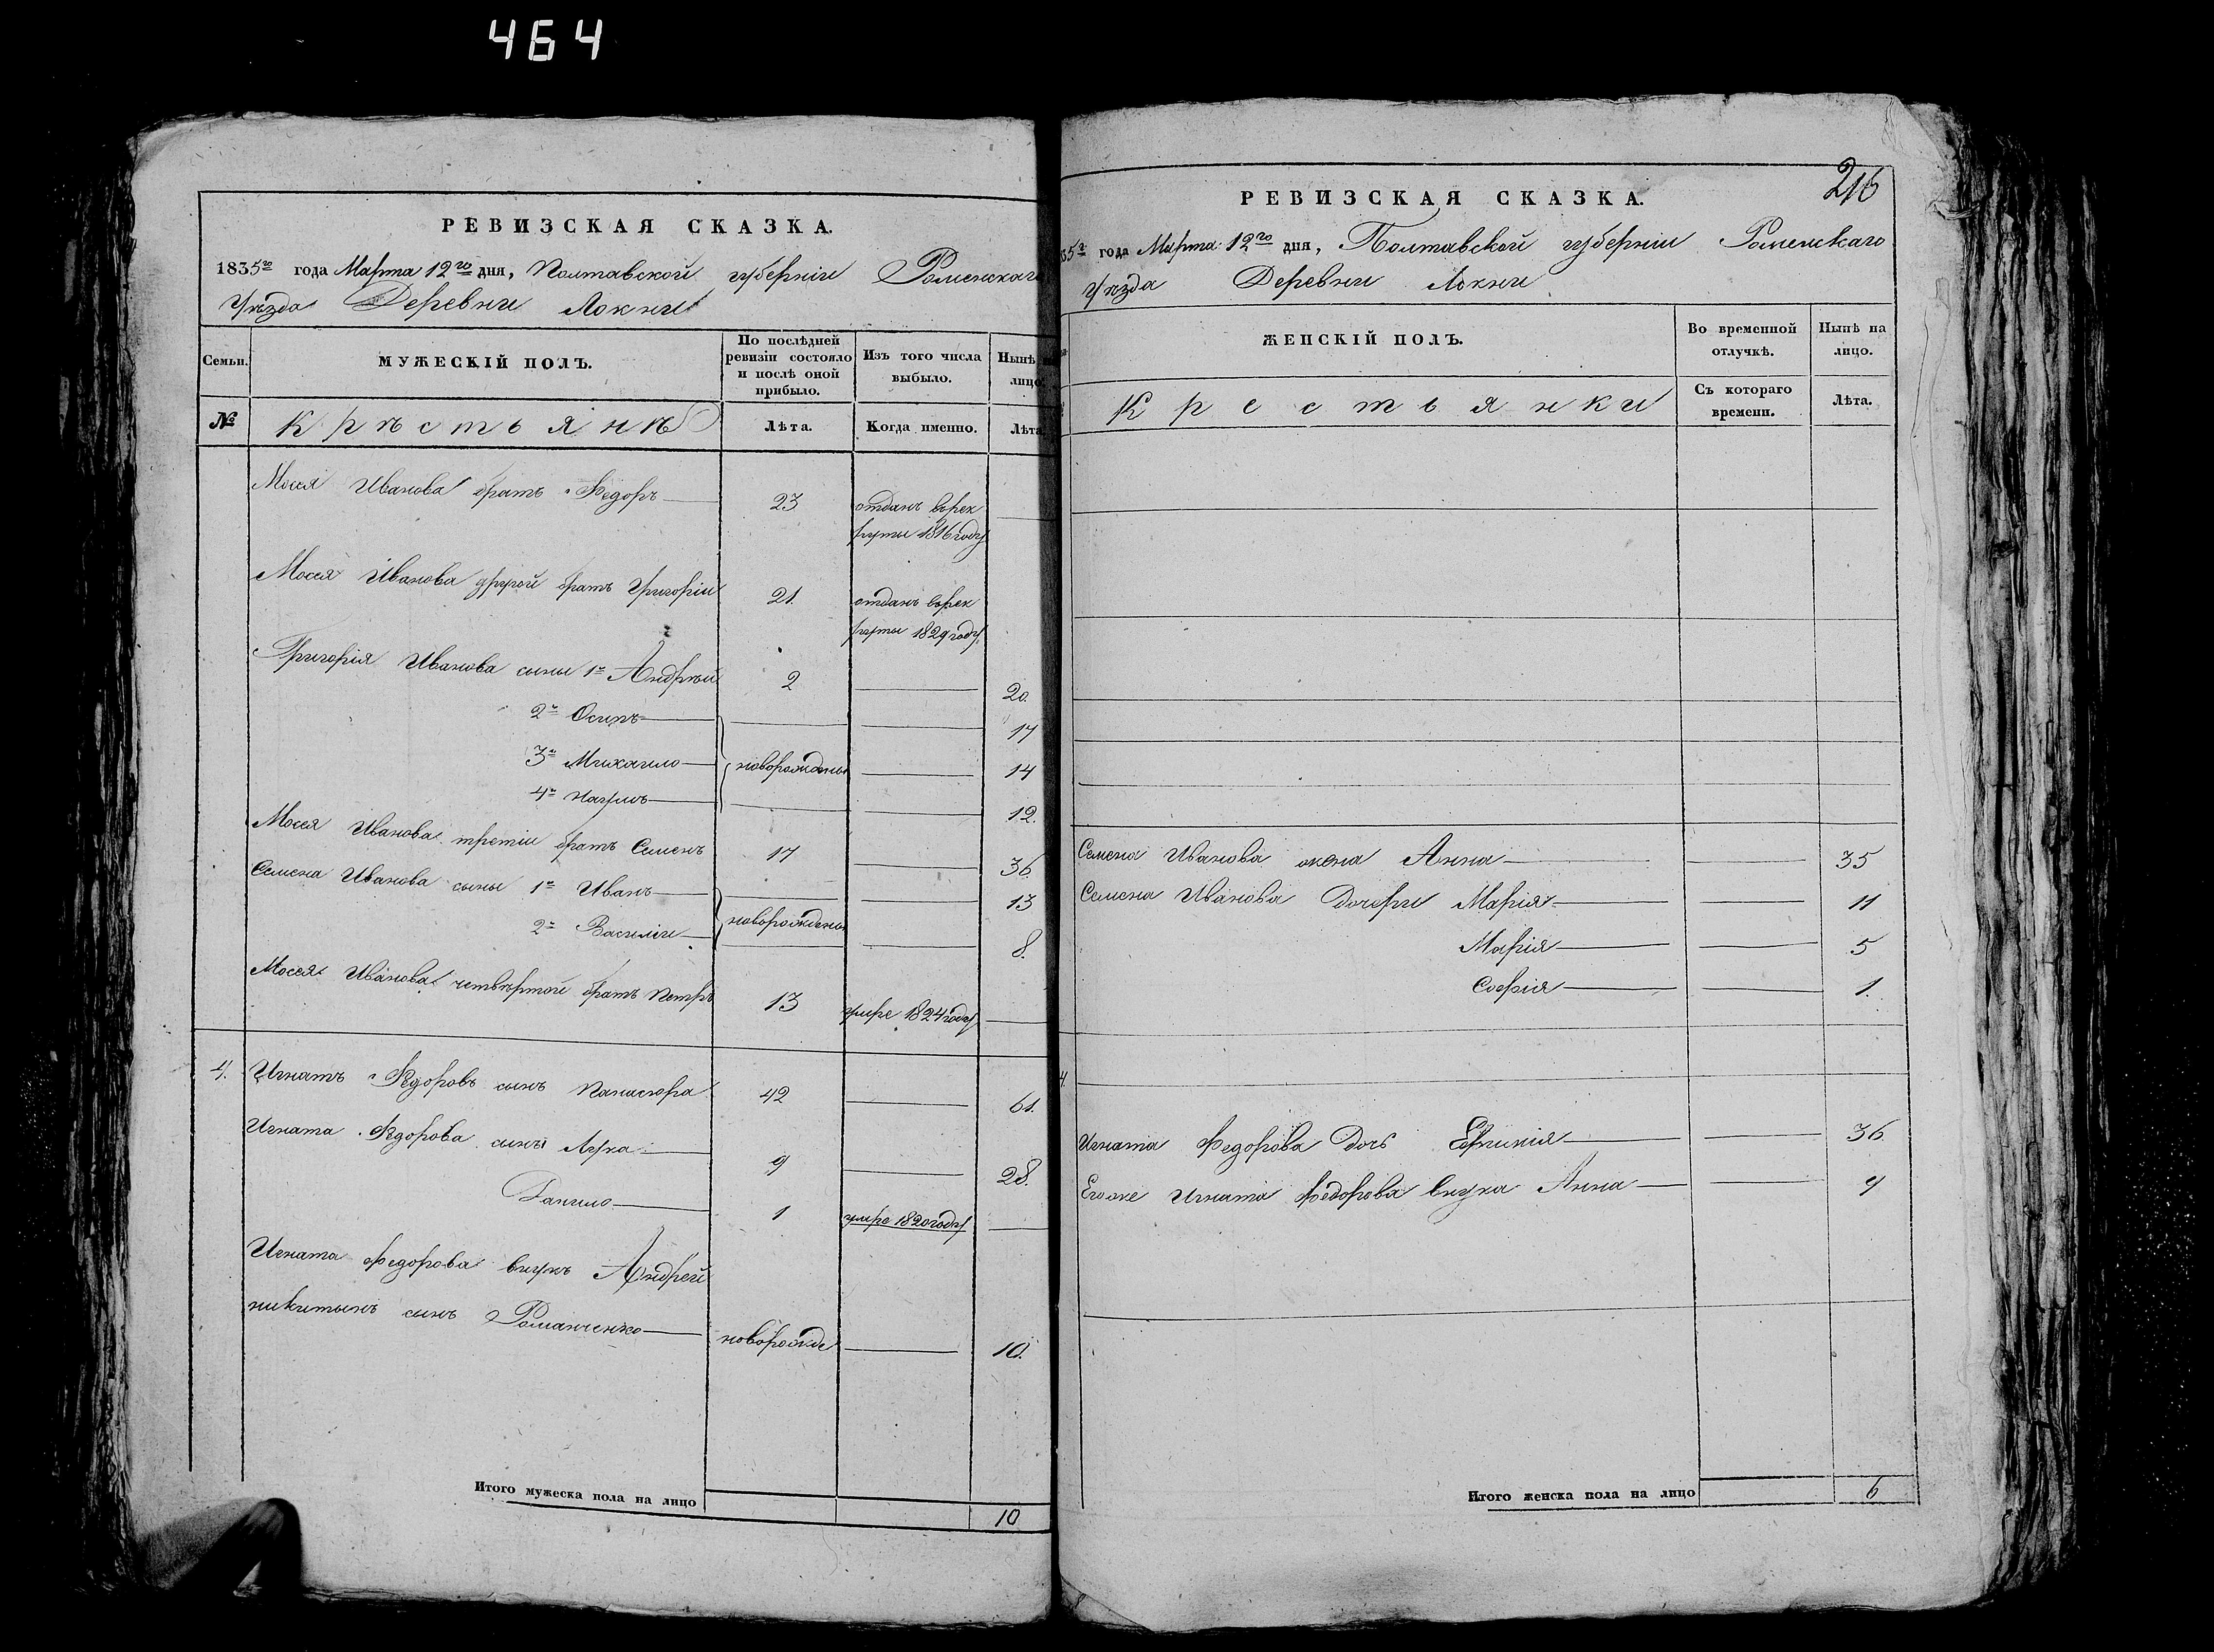 464
РЕВИЗСКАЯ СКАЗКА.
1835го года Марта 12го дня, Полтавской губерніи Роменскаго
Уѣзда Деревни Локни
Семьи. МУЖЕСКІЙ ПОЛЪ. По послѣдней ревизіи состояло и послѣ оной прибыло. Изъ того числа выбыло. Нынѣ на лицо.
№ Крѣстьянѣ Лѣта. Когда именно. Лѣта
Мосея Иванова братъ Федоръ 23 отданъ врек
руты 1816 году
Мосея Иванова другой братъ Григорій 21. отданъ врек
руты 1829 году
Григорія Иванова сыны 1й Андрѣй 2 20.
2й Осипъ 17
3й Михайло новорождены 14
4й Наумъ 12.
Мосея Иванова третій братъ Семенъ 17 36
Семена Иванова сыны 1й Иванъ 13
2й Василій новорождены 8.
Мосея Иванова четвѣртой братъ Петръ 13 умре 1824 году
4. Игнатъ Федоровъ сынъ Панасюра 42 61.
Игната Федорова сынъ Лука 9 28.
Данило 1 умре 1820 году
Игната Федорова внукъ Андрей
никитынъ сынъ Романченко новорожде 10.
Итого мужеска пола на лицо 10
216
РЕВИЗСКАЯ СКАЗКА.
35г года Марта 12го дня, Полтавской губерніи Роменскаго
Уѣзда Деревни Локни
ЖЕНСКІЙ ПОЛЪ. Во временной отлучкѣ. Нынѣ на лицо.
Крестьянки Съ котораго времени. Лѣта.
Семена Иванова жена Анна 35
Семена Иванова Дочери Марія 11
Марія 5
Софія 1.
4.
Игната Федорова Дочь 36
Егоже Игната Федорова внука Анна 4
Итого женска пола на лицо 6